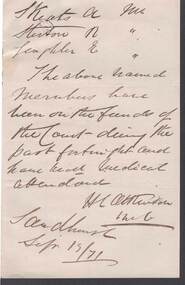 Skeats A Mc
Hixton R "
Genphler E "
The above named
Members have
been on the funds of
the Court during the
past fortnight and
have had medical
attendance
H L Atkinson
Sandhurst
Sept 19/71